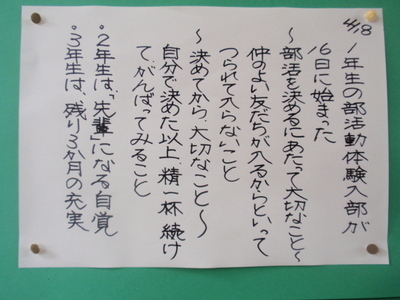 4/18
1年生の部活動体験入部が
16日に始まった
〜部活を決めるにあたって大切なこと〜
仲のよい友だちが入るからといって
つられて入らないこと
〜決めてから、大切なこと〜
自分で決めた以上、精一杯続け
て、がんばってみること
・2年生は、"先輩"になる自覚
・3年生は、残り3か月の充実